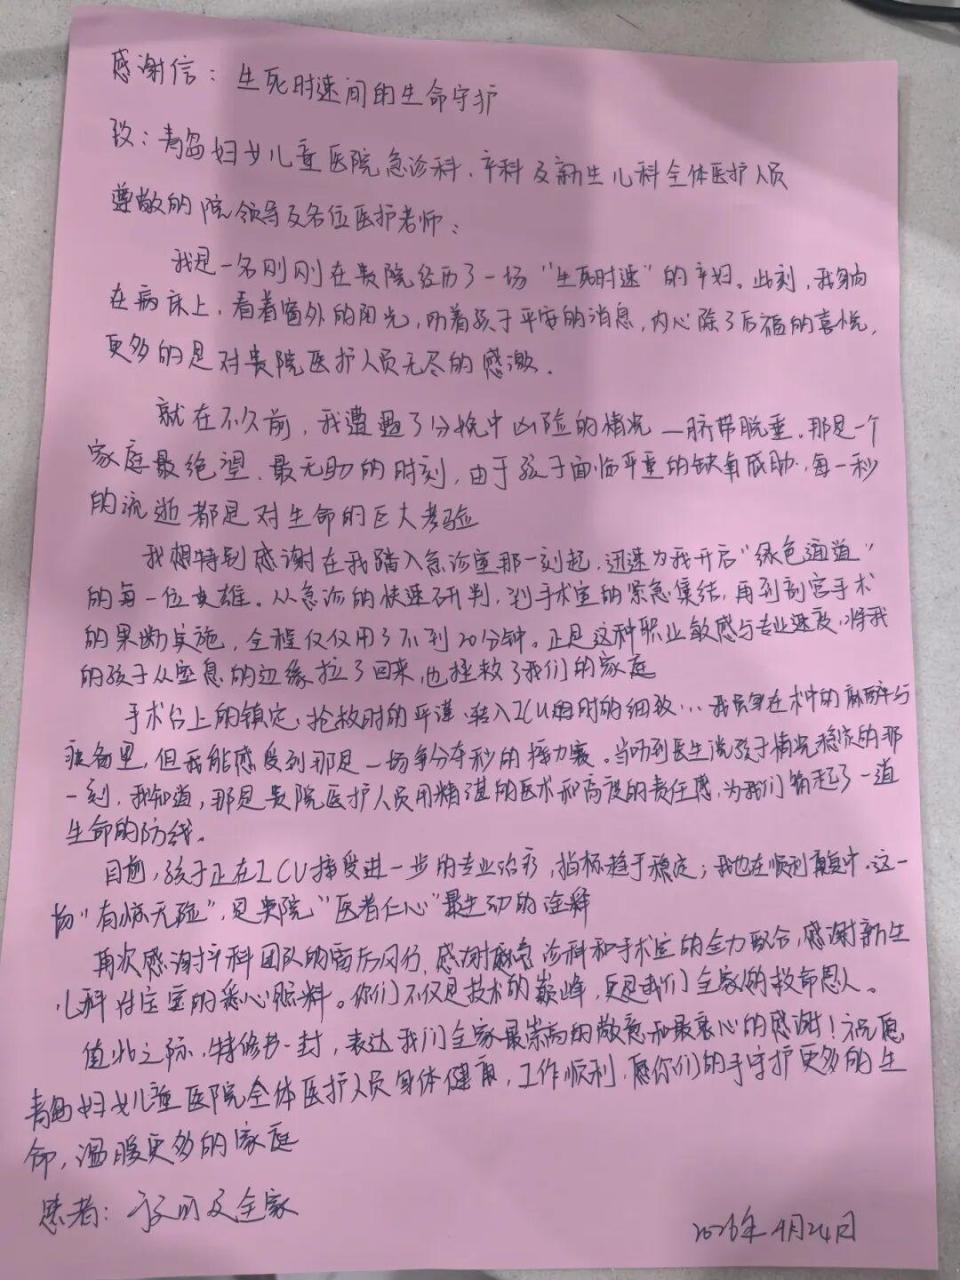 感谢信：生死时速间的生命守护
致：青岛妇女儿童医院急诊科、产科及新生儿科全体医护人员
尊敬的院领导及各位医护老师：
我是一名刚刚在贵院经历了一场“生死时速”的产妇。此刻，我躺
在病床上，看着窗外的阳光，听着孩子平安的消息，内心除了后福的喜悦，
更多的是对贵院医护人员无尽的感激．
就在不久前，我遭遇了分娩中凶险的情况—脐带脱垂。那是一个
家庭最绝望、最无助的时刻，由于孩子面临严重的缺氧威胁，每一秒
的流逝都是对生命的巨大考验
我想特别感谢在我踏入急诊室那一刻起，迅速为我开启“绿色通道”
的每一位英雄。从急诊的快速研判，到手术室的紧急集结，再到剖宫手术
的果断实施，全程仅仅用了不到20分钟。正是这种职业敏感与专业速度，将我
的孩子从窒息的边缘拉了回来，也拯救了我们的家庭
手术台上的镇定，抢救时的平谨、转入ICU时的细致…我虽身在术中的麻醉与
疲惫里，但我能感受到那是一场争分夺秒的接力赛。当听到医生说孩子情况稳定的那
一刻，我知道，那是贵院医护人员用精湛的医术和高度的责任感，为我们筑起了一道
生命的防线。
目前，孩子正在ICU接受进一步的专业治疗，指标趋于稳定；我也在顺利康复中。这一
场“有惊无险”，是贵院“医者仁心”最生动的诠释
再次感谢产科团队的雷厉风行、感谢急诊科和手术室的全力配合，感谢新生
儿科对宝宝的悉心照料。你们不仅是技术的巅峰，更是我们全家的救命恩人。
值此之际，特修书一封，表达我们全家最崇高的敬意和最衷心的感谢！祝愿
青岛妇女儿童医院全体医护人员身体健康，工作顺利，愿你们的手守护更多的生
命，温暖更多的家庭
患者：及全家
2026年4月24日